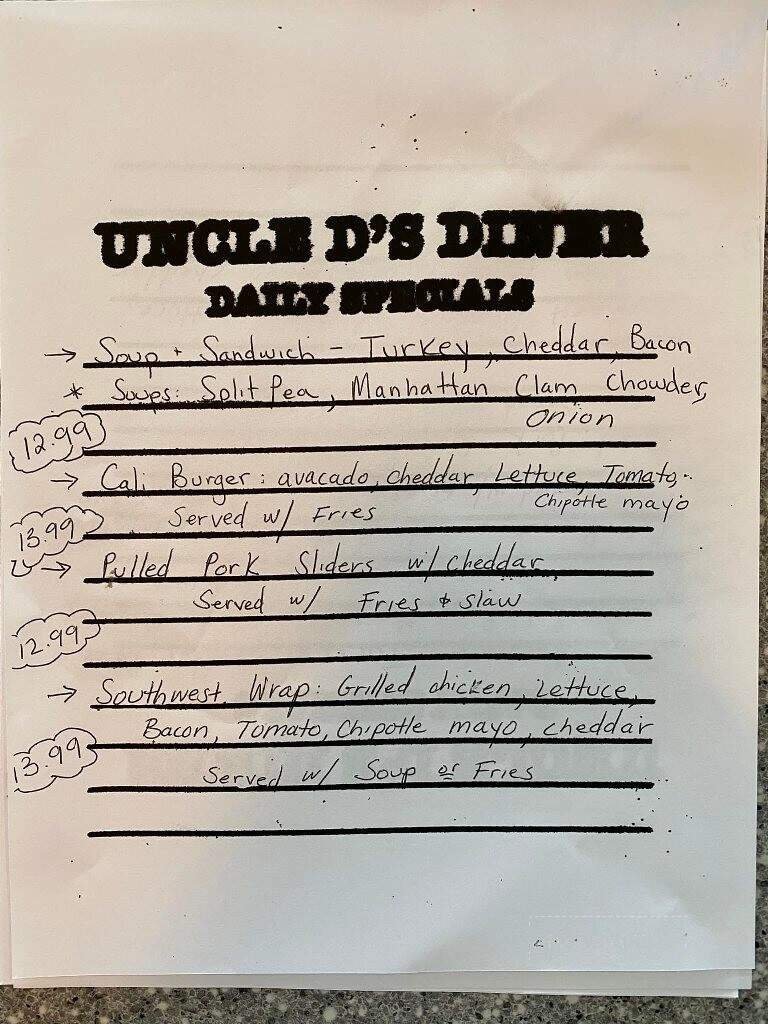 UNCLE D'S DINER
DAILY SPECIALS
→ Soup + Sandwich - Turkey, Cheddar, Bacon
* Soups: Split Pea, Manhattan Clam Chowder,
Onion
12.99
→ Cali Burger: avacado, cheddar, Lettuce, Tomato,
Chipotle mayo
Served w/ Fries
13.99
→ Pulled Pork Sliders w/ cheddar
Served w/ Fries & slaw
12.99
→ Southwest Wrap: Grilled chicken, Lettuce,
Bacon, Tomato, Chipotle mayo, cheddar
13.99
Served w/ Soup or Fries